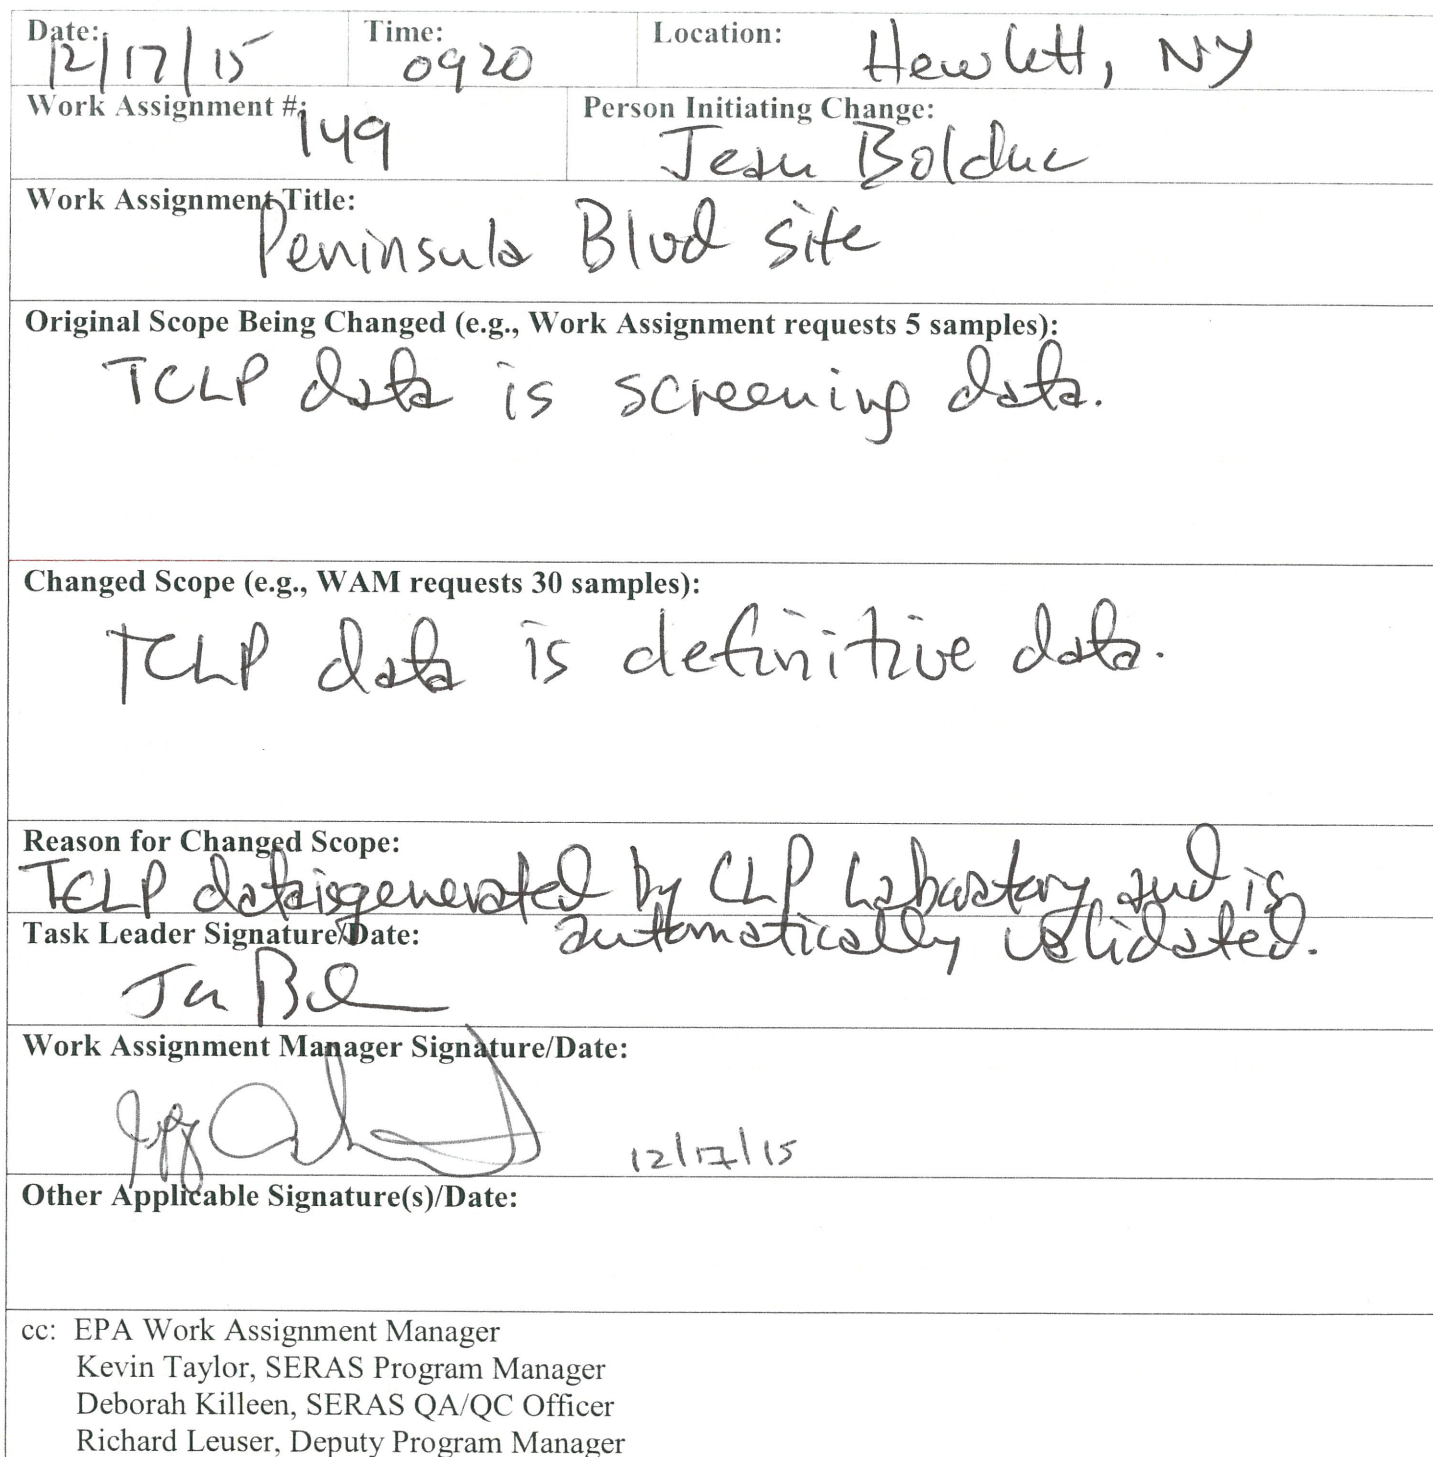 Date: Time: Location:
12/17/15 0920 Hewlett, NY
Work Assignment #: Person Initiating Change:
149 Jean Bolduc
Work Assignment Title:
Peninsula Blvd Site
Original Scope Being Changed (e.g., Work Assignment requests 5 samples):
TCLP data is screening data.
Changed Scope (e.g., WAM requests 30 samples):
TCLP data is definitive data.
Reason for Changed Scope:
TCLP data is generated by CLP Laboratory and is
automatically validated.
Task Leader Signature/Date:
Work Assignment Manager Signature/Date:
12/17/15
Other Applicable Signature(s)/Date:
cc: EPA Work Assignment Manager
Kevin Taylor, SERAS Program Manager
Deborah Killeen, SERAS QA/QC Officer
Richard Leuser, Deputy Program Manager